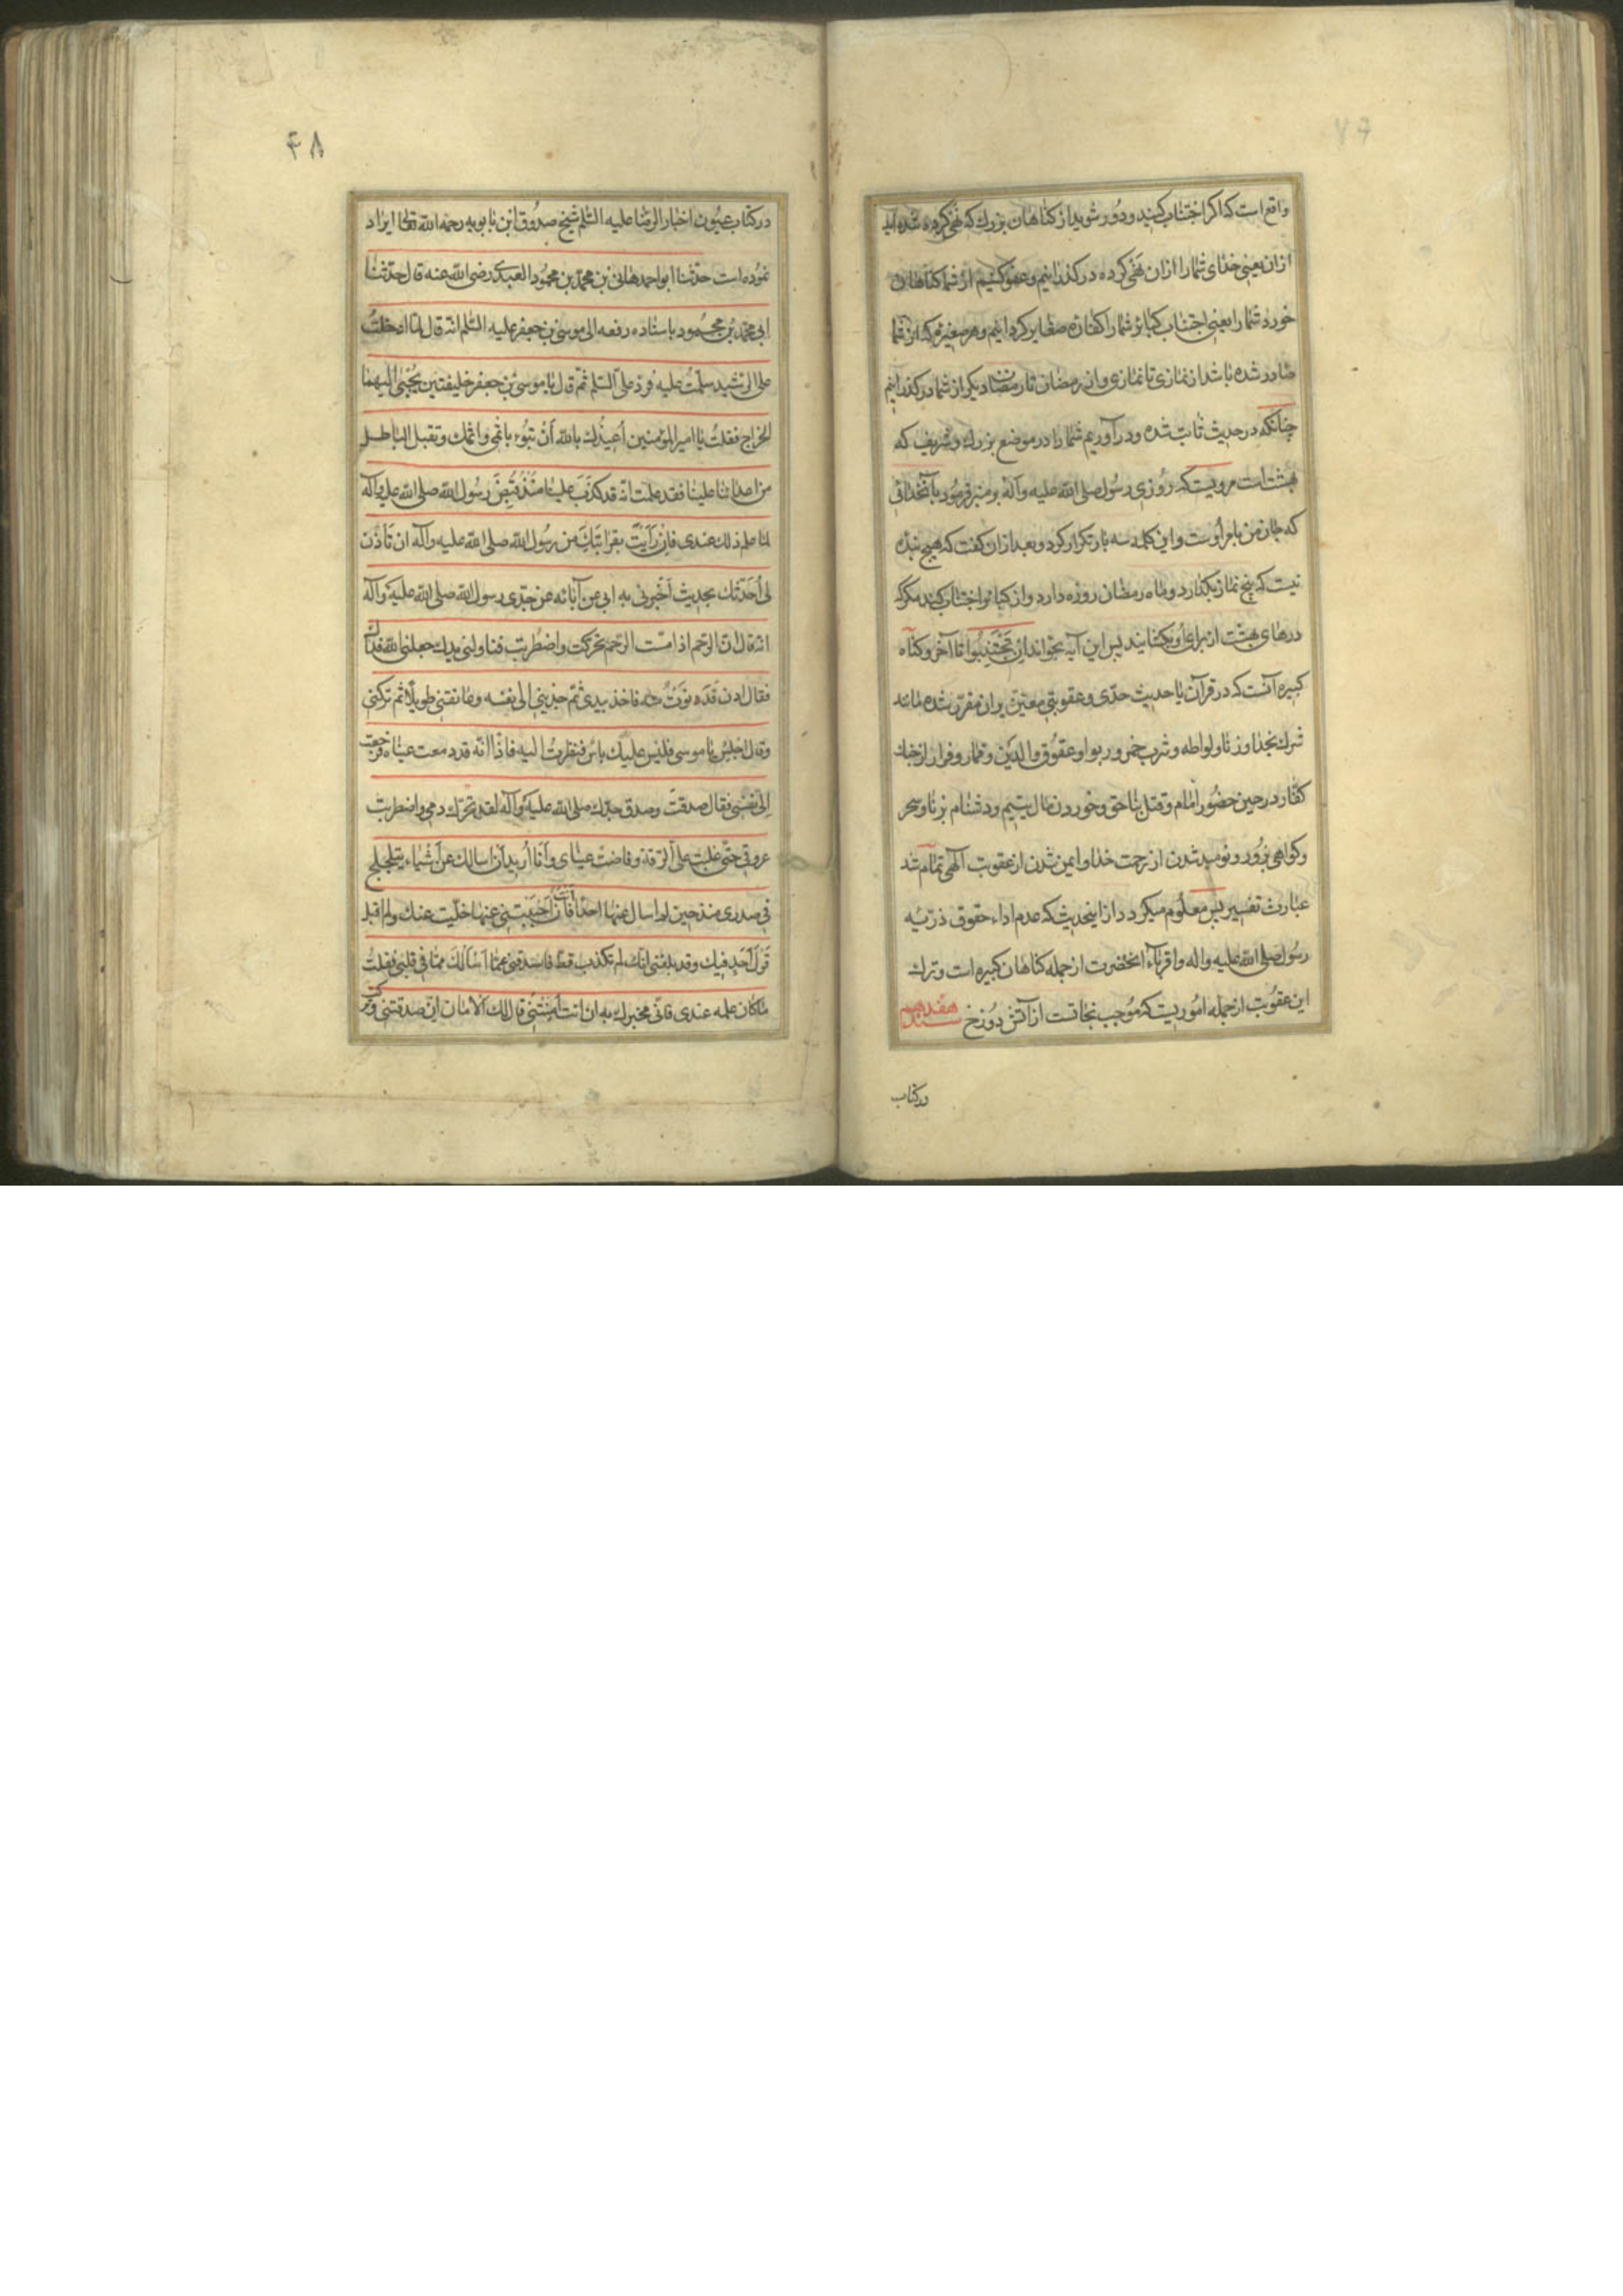 ۴۷
واقع است که اکر اجتناب کنید و دور شوید از کناهان بزرك که نهی کرده شده اید
از ان یعنی خدای شما را از ان نهی کرده در کذرانیم و عفو کنیم از شما کناهان
خورد شما را یعنی اجتناب کبائر شما را کفاره صغایر کردانیم و هر صغیره که از شما
صادر شده باشد از نمازی تا نمازی و از رمضان تا رمضان دیکر از شما در کذرانیم
چنانکه در حدیث ثابت شده و در آوریم شما را در موضع بزرك و شریف که
بهشت است مرویست که روزی رسول صلی الله علیه وآله بر منبر فرمود بآنخدائی
که جان من بامر اوست و این کلمه سه بار تکرار کرد و بعد از ان کفت که هیچ بنده
نیست که پنج نماز بکذارد و ماه رمضان روزه دارد و از کبائر اجتناب کند مکر که
درهای بهشت از برای او بکشایند پس این آیه بخواند ان تجتنبوا تا آخر و کناه
کبیره آنست که در قرآن یا حدیث حدی و عقوبتی معین بر ان مقرر شده مانند
شرك بخدا و زنا و لواطه و شرب خمر و ربوا و عقوق والدین و قمار و فرار از جنك
کفار در حین حضور امام و قتل بناحق و خوردن مال یتیم و دشنام بزنا و سحر
و کواهی بزور و نومید شدن از رحمت خدا و ایمن شدن از عقوبت الهی تمام شد
عبارت تفسیر پس معلوم میکردد از اینحدیث که عدم اداء حقوق ذریه
رسول صلی الله علیه واله و اقرباء انحضرت از جمله کناهان کبیره است و ترك
این عقوبت از جمله اموریست که موجب نجاتست از آتش دوزخ سند هفدهم
در کتاب
۴۸
در کتاب عیون اخبار الرضا علیه السلم شیخ صدوق ابن بابویه رحمه الله تعالی ایراد
نموده است حدثنا ابو احمد هانی بن محمد بن محمود العبدی رضی الله عنه قال حدثنا
ابی محمد بن محمود باسناده رفعه الی موسی بن جعفر علیه السلم انه قال لما ادخلت
علی الرشید سلمت علیه فرد علی السلم ثم قال یا موسی بن جعفر خلیفتین یجبی الیهما
الخراج فقلت یا امیر المؤمنین أعیذك بالله أن تبوء باثمی واثمك وتقبل الباطل
من اعدائنا علینا فقد علمت انه قد کذب علینا منذ قبض رسول الله صلی الله علیه وآله
اما علم ذلك عندی فان رأیت بقرابتك من رسول الله صلی الله علیه وآله ان تأذن
لی أحدثك بحدیث أخبرنی به ابی عن آبائه عن جدی رسول الله صلی الله علیه وآله
انه قال ان الرحم اذا مست الرحم تحرکت واضطربت فناولنی یدك جعلنی الله فداك
فقال ادن فدنوت منه فاخذ بیدی ثم جذبنی الی نفسه وعانقنی طویلا ثم ترکنی
وقال اجلس یا موسی فلیس علیك باس فنظرت الیه فاذا انه قد دمعت عیناه فرجعت
الی نفسی فقال صدقت وصدق جدك صلی الله علیه وآله لقد تحرك دمی واضطربت
عروقی حتی غلبت علی الرقة وفاضت عینای وأنا أرید أن اسالك عن أشیاء یتلجلج
فی صدری منذ حین لم اسال عنها احدا فان أنت أجبتنی عنها خلیت عنك ولم اقبل
قول أحد فیك وقد بلغنی انك لم تکذب قط فاصدقنی عما أسألك مما فی قلبی فقلت
ما کان علمه عندی فانی مخبرك به ان انت أمنتنی قال لك الامان ان صدقتنی وترکت